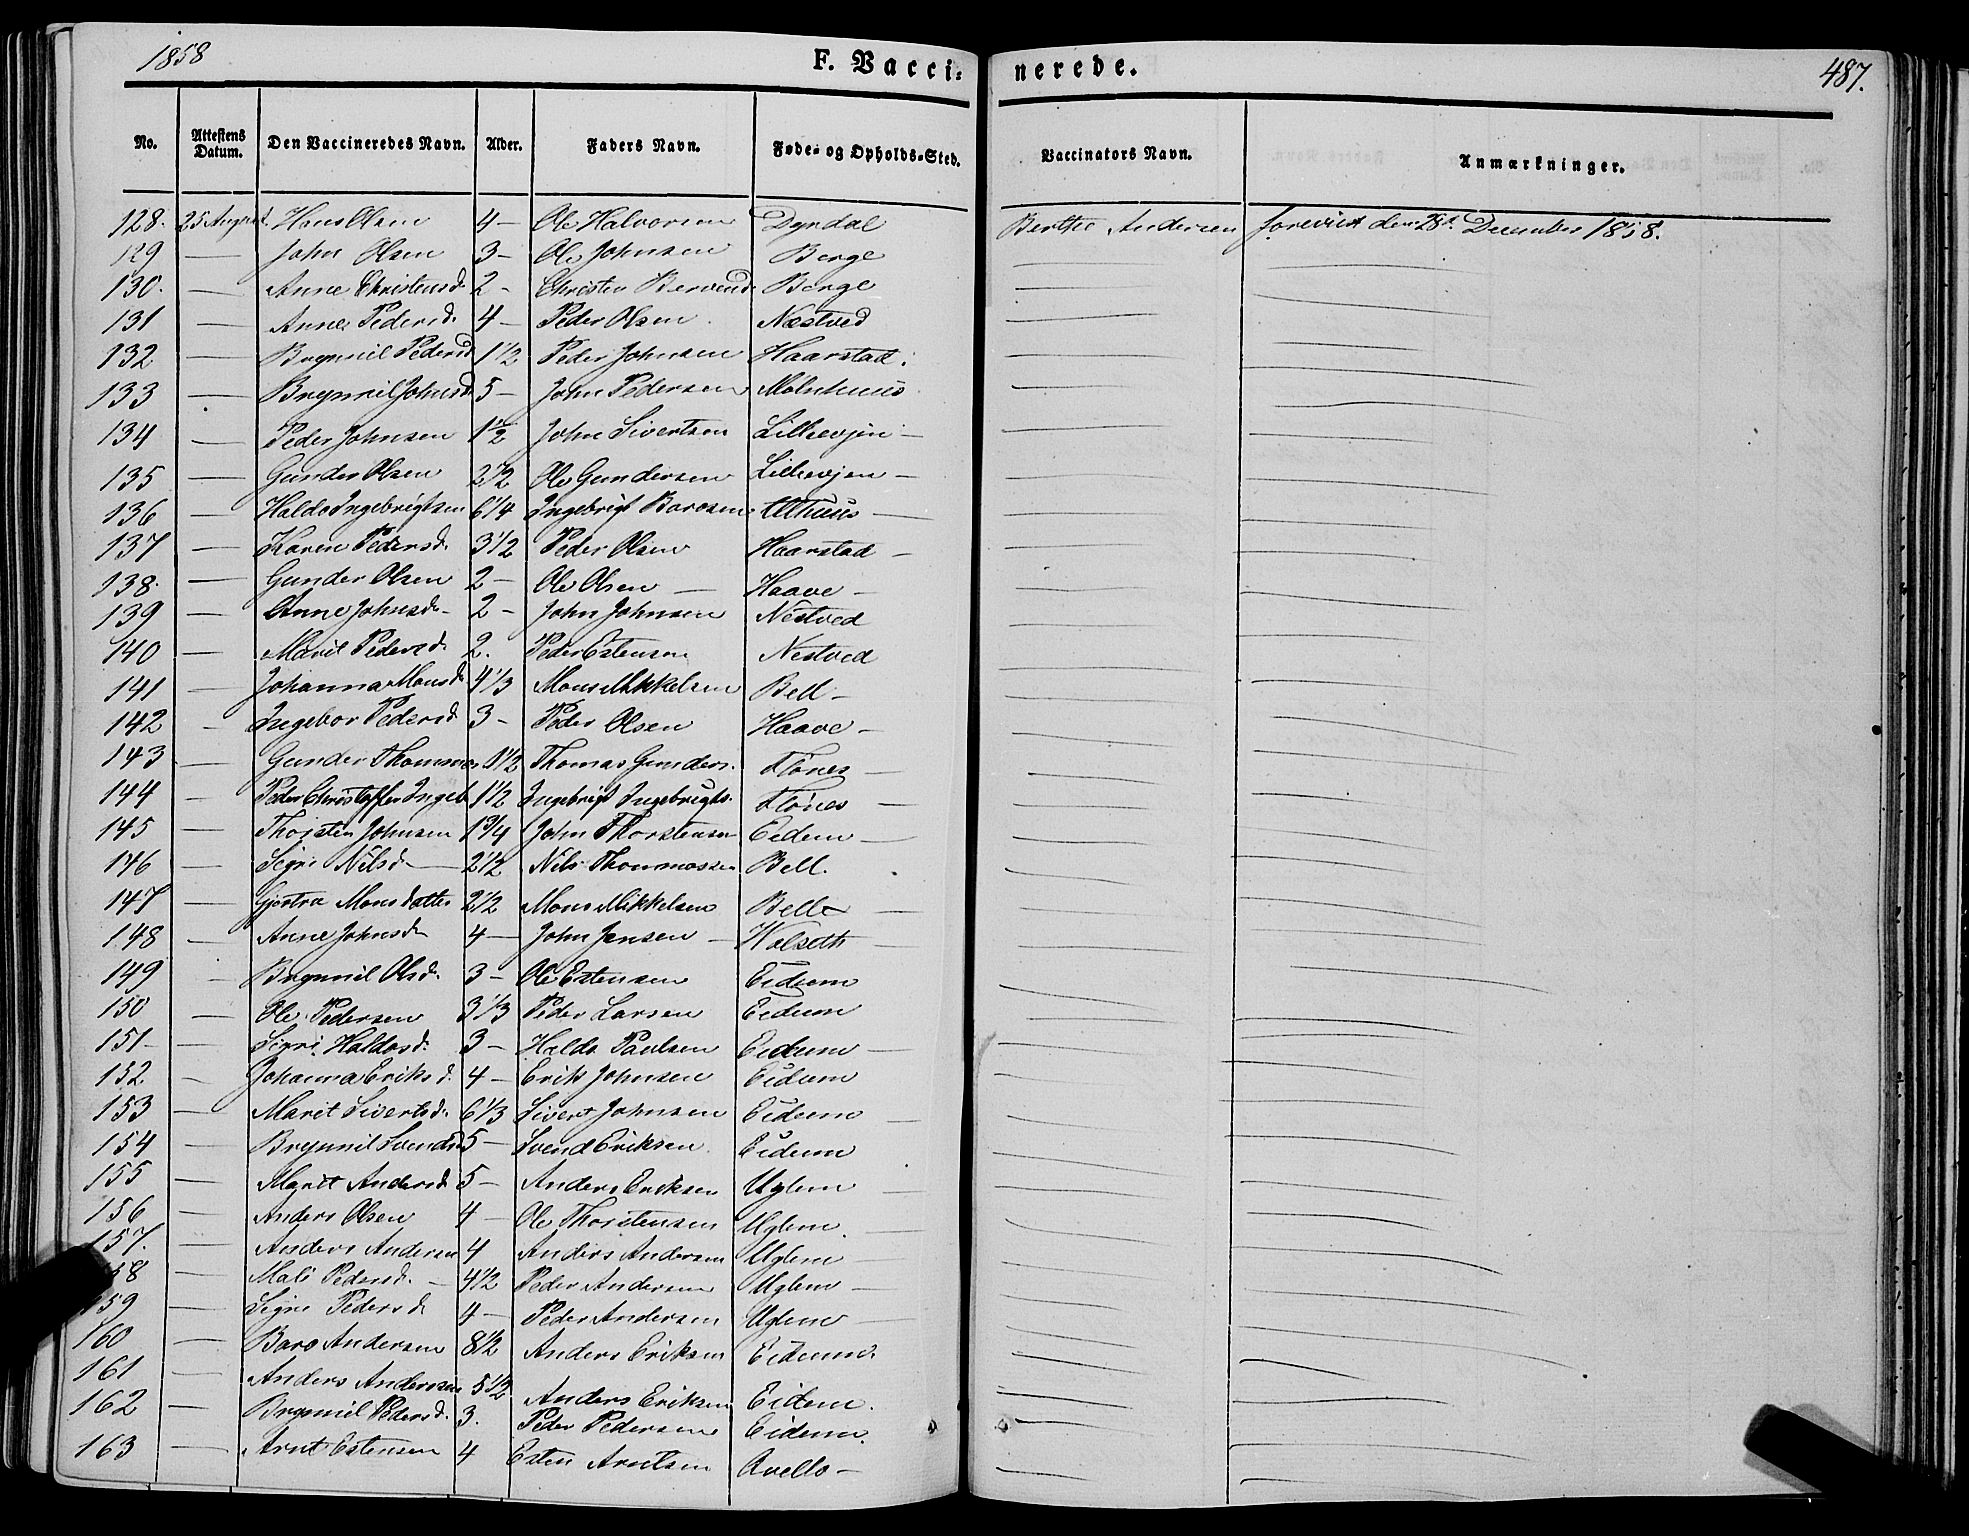 1858
F. Vacci-
nerede.
487.
No. Attestens Datum. Den Vaccineredes Navn. Alder. Faders Navn. Føde- og Opholds-Sted. Vaccinators Navn. Anmærkninger.
128. 25 August. Hans Olsen 4 - Ole Halvorsen Dyrdal Berthe Andersen forevist den 28de December 1858.
129 — John Olsen 3 - Ole Johnsen Berge
130. — Anne Christensd. 2 - Christen Berge
131 — Anne Pedersd. 4 - Peder Olsen Næstved
132 — Brynnil Pedersd 1 1/2 Peder Johnsen Haarstad.
133 — Brynnil Johnsd 5 - John Pedersen Mølnhuus
134 — Peder Johnsen 1 1/2 John Sivertsen Lillievjen -
135 — Gunder Olsen 2 1/2 Ole Gundersen Lillievjen -
136 — Haldo Ingebrigtsen 6 1/4 Ingebrigt Barosen Althuus —
137 — Karen Pedersd. 3 1/2 Peder Olsen Haarstad -
138. — Gunder Olsen 2 - Ole Olsen — Haave -
139 — Anne Johnsd. 2 - John Johnsen Nestved
140 — Marit Pedersd. 2. Peder Estensen Nestved
141 — Johanna Monsd 4 1/3 Mons Mikkelsen Bell -
142 - Ingebor Pedersd 3 - Peder Olsen Haave -
143 — Gunder Thommas 1 1/2 Thomas Gunders. Flønes —
144 — Peder Christoffer Ingeb 1 1/2 Ingebrigt Ingebrigts. Flønes —
145 — Thorsten Johnsen 1 3/4 John Thorstensen Eidem —
146 — Sigri Nilsd — 2 1/2 Nils Thommassen Bell.
147 — Gjertru Monsdatter 2 1/2 Mons Mikkelsen Belle —
148 — Anne Johnsd 4 — John Jensen - Wolseth —
149 — Brynnil Olsd. 3 - Ole Estensen Eidum
150 — Ole Pedersen 3 1/3 Peder Larsen Eidum
151 — Sigri Haldosd. 3 - Haldo Paulsen Eidum —
152 — Johanna Eriksd. 4 - Erik Johnsen Eidum
153 — Marit Sivertsd. 6 1/3 Sivert Johnsen Eidum
154 — Brynnil Svendsd 5 - Svend Eriksen Eidum
155 — Marit Andersd 5 - Anders Eriksen Uglem —
156 — Anders Olsen 4 - Ole Thorstensen Uglem. —
157. — Anders Andersen 4 Anders Andersen Uglem
58 — Mali Pedersd. - 4 1/2 Peder Andersen Uglem —
159 — Sigri Pedersd 4 - Peder Andersen Uglem —
160 — Baro Andersen 8 1/2 Anders Eriksen Eidum.
161 — Anders Andersen 5 1/2 Anders Eriksen Eidem.
162 — Brynnil Pedersd. 3. Peder Pedersen Eidem.
163 — Arnt Estensen 4 Esten Arntsen Avello -